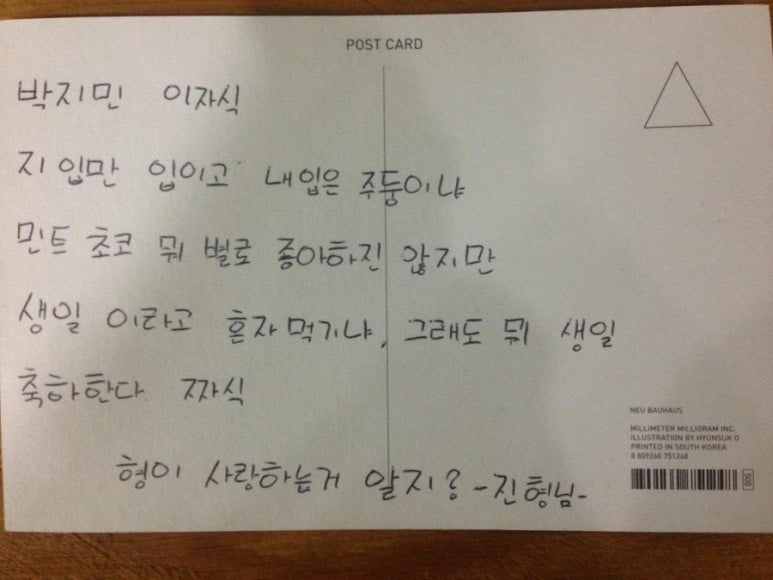 POST CARD
박지민 이자식
지 입만 입이고 내입은 주둥이냐
민트 초코 뭐 별로 좋아하진 않지만
생일 이라고 혼자먹기냐, 그래도 뭐 생일
축하한다 짜식
형이 사랑하는거 알지? -진형님-
NEU BAUHAUS
MILLIMETER MILLIGRAM INC.
ILLUSTRATION BY HYUNSUK O
PRINTED IN SOUTH KOREA
8 809260 751248
500